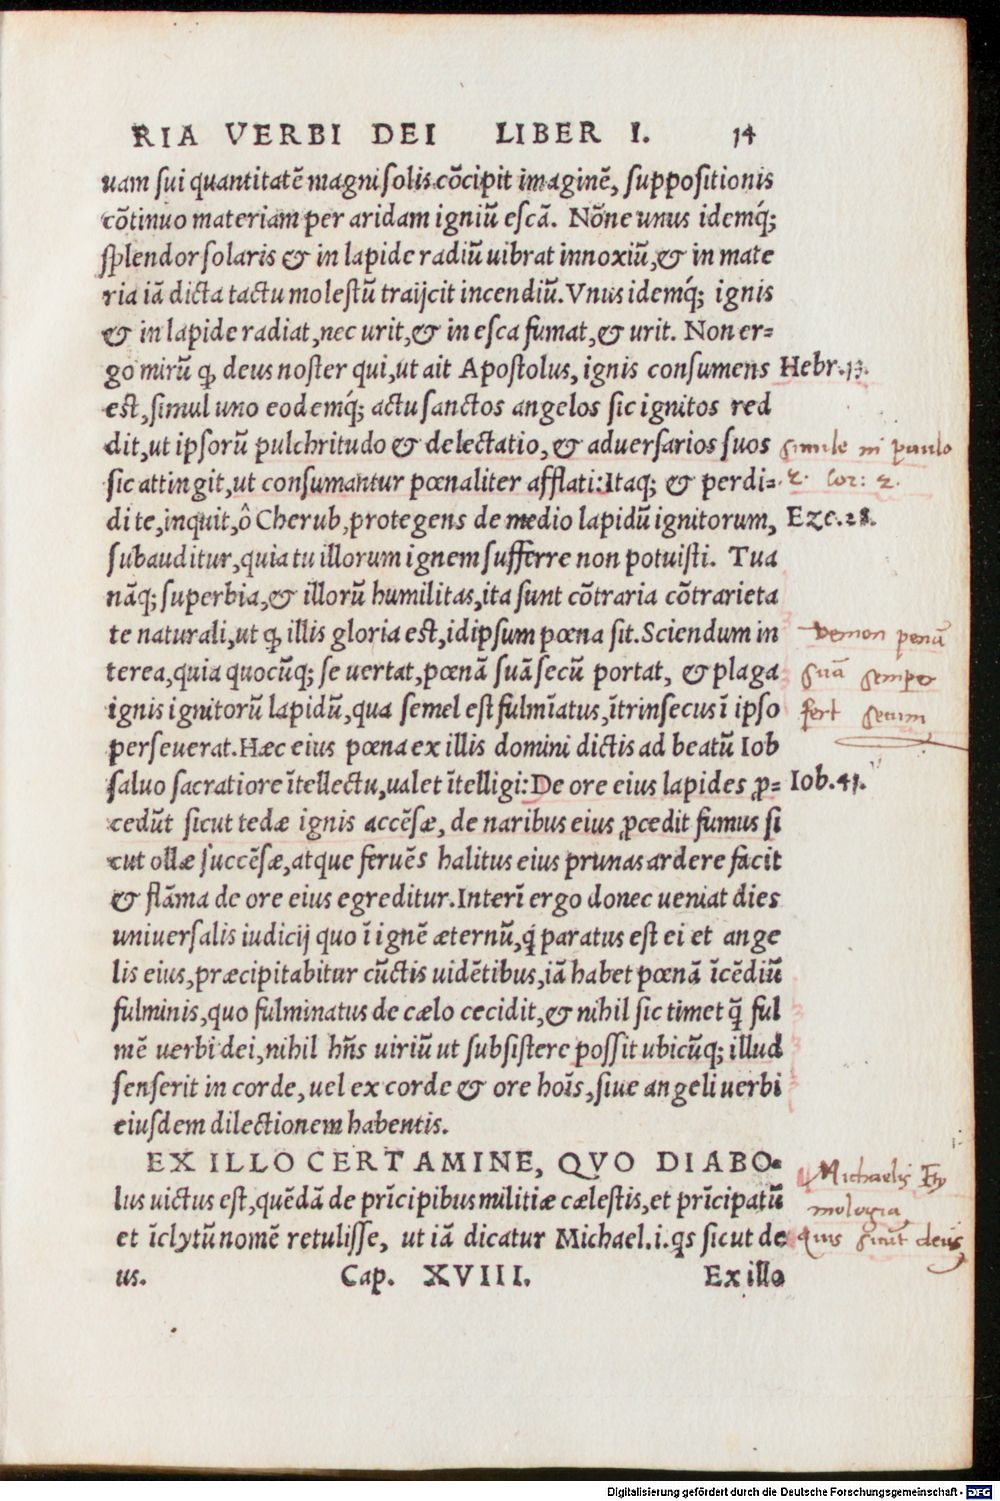 RIA VERBI DEI LIBER I. 14
uam sui quantitatē magni solis cōcipit imaginē, suppositionis
cōtinuo materiam per aridam igniū escā. Nōne unus idemq́;
splendor solaris & in lapide radiū uibrat innoxiū, & in mate
ria iā dicta tactu molestū traijcit incendiū. Vnus idemq́; ignis
& in lapide radiat, nec urit, & in esca fumat, & urit. Non er=
go mirū ꝙ deus noster qui, ut ait Apostolus, ignis consumens Hebr. 13.
est, simul uno eodemq́; actu sanctos angelos sic ignitos red
dit, ut ipsorū pulchritudo & delectatio, & aduersarios suos simile in paulo
sic attingit, ut consumantur pœnaliter afflati: Itaq; & perdi= 2. Cor: 2.
di te, inquit, ô Cherub, protegens de medio lapidū ignitorum, Eze. 28.
subauditur, quia tu illorum ignem sufferre non potuisti. Tua
nāq; superbia, & illorū humilitas, ita sunt cōtraria cōtrarieta
te naturali, ut ꝙ illis gloria est, idipsum pœna sit. Sciendum in Demon penā
terea, quia quocūq; se uertat, pœnā suā secū portat, & plaga suā semper
ignis ignitorū lapidū, qua semel est fulmīatus, ītrinsecus ī ipso fert secum
perseuerat. Hæc eius pœna ex illis domini dictis ad beatū Iob
saluo sacratiore ītellectu, ualet ītelligi: De ore eius lapides ꝓ= Iob. 41.
cedūt sicut tedæ ignis accēsæ, de naribus eius ꝓcedit fumus si
cut ollæ succēsæ, atque feruēs halitus eius prunas ardere facit
& flāma de ore eius egreditur. Interī ergo donec ueniat dies
uniuersalis iudicij quo ī ignē æternū, q́ paratus est ei et ange
lis eius, præcipitabitur cūctis uidētibus, iā habet pœnā īcēdiū
fulminis, quo fulminatus de cælo cecidit, & nihil sic timet q̄̃ ful
mē uerbi dei, nihil hñs uiriū ut subsistere possit ubicūq; illud
senserit in corde, uel ex corde & ore hoīs, siue angeli uerbi
eiusdem dilectionem habentis.
EX ILLO CERTAMINE, QVO DIABO=
lus uictus est, quēdā de prīcipibus militiæ cælestis, et prīcipatū Michaelis Ety
et īclytū nomē retulisse, ut iā dicatur Michael .i. qs sicut de mologia
us. Cap. XVIII. Ex illo quis sicut deus
Digitalisierung gefördert durch die Deutsche Forschungsgemeinschaft - DFG